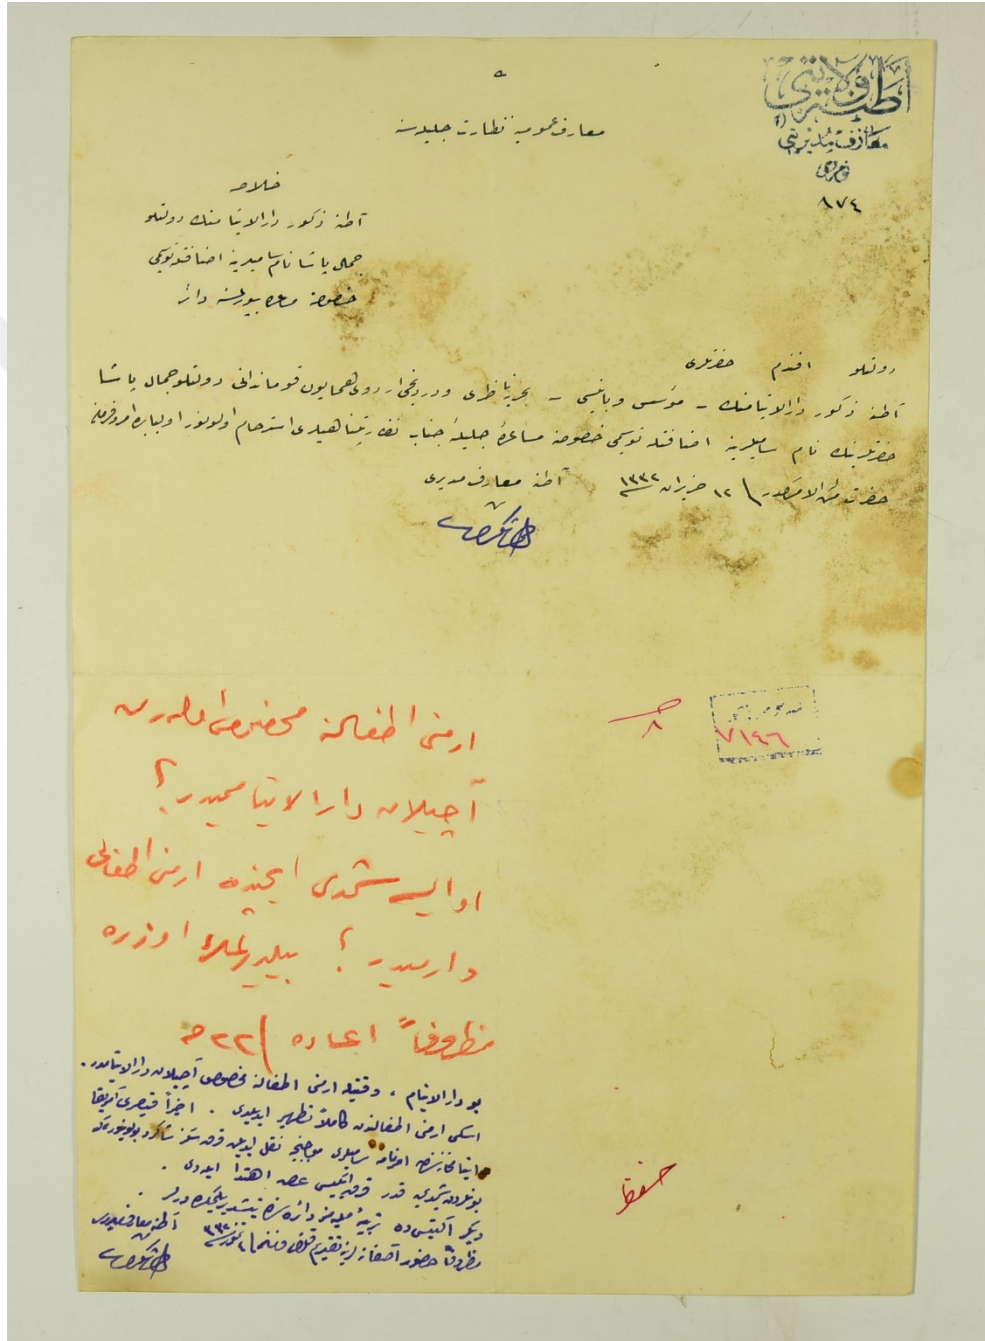 أطنه ولايتى
معارف مديريتى
نومرو
٨٧٤
معارف عموميه نظارت جليله سنه
خلاصه
آطنه ذكور دار الايتامنك دولتلو
جمال پاشا نام ساميلرينه اضافتله توسيمى
خصوصنه مساعده بيورلمسنه دائر
دولتلو افندم حضرتلرى
آطنه ذكور دار الايتامنك - مؤسس وبانيسى - بحريه ناظرى ودردنجى اردوى همايون قوماندانى دولتلو جمال پاشا
حضرتلرينك نام ساميلرينه اضافتله توسيمى خصوصنه مساعدۀ جليلۀ جناب نظارتپناهيلرى استرحام اولونور اولبابده امر وفرمان
حضرت من له الامركدر ١٢ حزيران سنه ١٣٣٢ آطنه معارف مديرى
٨
٧١٤٦
ارمنى اطفالنه مخصوص اوله رق
آچيلان دار الايتام ميدر؟
او ايسه شمدى ايچنده ارمنى اطفالى
وارميدر؟ بيلديرلمك اوزره
مظروفاً اعاده ٢٢
بو دار الايتام، وقتيله ارمنى اطفالنه مخصوص آچيلان دار الايتامدر.
اسكى ارمنى اطفالندن كاملاً تطهير ايديلدى. اخيراً قيصرى آمريقا
ايتامخانه سندن امرنامه ساميلرى موجبنجه نقل ايديلن قرق سكز شاگرد بولونيور
بونلردن شمديه قدر قرق ايكيسى عرض اهتدا ايلدى.
ديگر آلتيسى ده تربيۀ مليه مز دائره سنده يتيشديريله جكدر.
مظروفاً حضور آصفانه لرينه تقديم قلندى ٤ تموز سنه ٣٣٢ آطنه معارف مديرى
حفظ